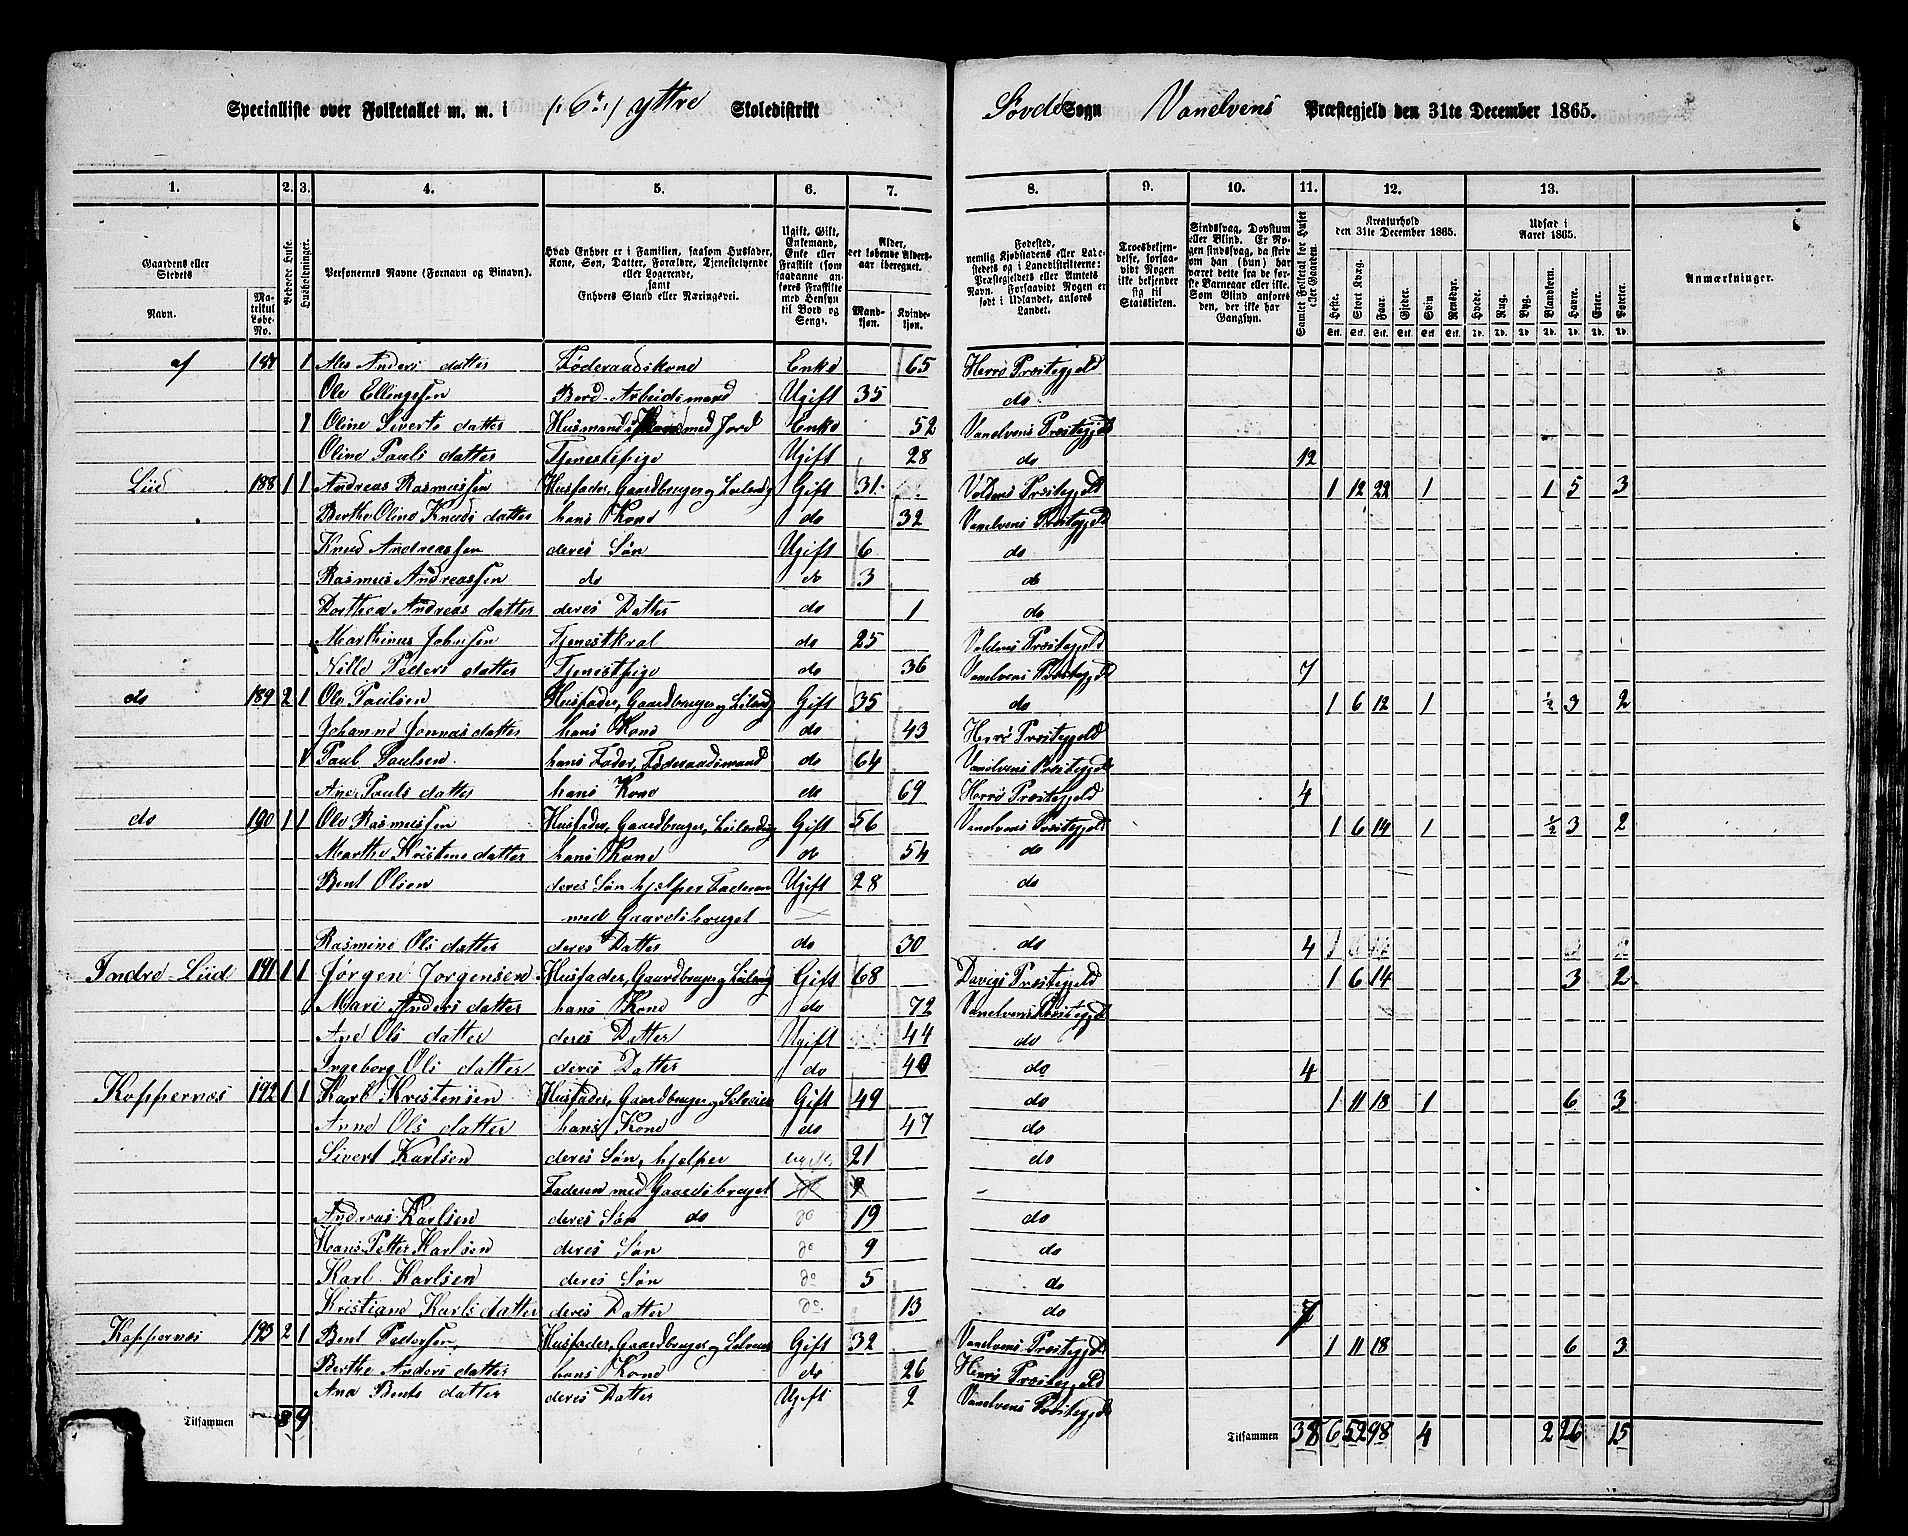 Specialliste over Folketallet m. m. i (:6te:) yttre Skoledistrikt Søvde Sogn Vanelvens Præstegjeld den 31te December 1865.
1. 2. 3. 4. 5. 6. 7. 8. 9. 10. 11. 12. 13.
Gaardens eller Stedets Navn. Matrikul Løbe-No. Beboede Huse. Husholdninger. Personernes Navne (Fornavn og Binavn). Hvad Enhver er i Familien, saasom Husfader, Kone, Søn, Datter, Forældre, Tjenestetyende eller Logerende, samt Enhvers Stand eller Næringsvei. Ugift, Gift, Enkemand, Enke eller Fraskilt (som saadanne anføres Fraskilte med Hensyn til Bord og Seng). Alder, det løbende Alders-aar iberegnet. Mandkjøn. Kvindekjøn.
Fødested, nemlig Kjøbstadens eller Ladestedets og i Landdistrikterne: Præstegjeldets eller Amtets Navn. Forsaavidt Nogen er født i Udlandet, anføres Landet. Troesbekjendelse, forsaavidt Nogen ikke bekjender sig til Statskirken. Sindssvag, Døvstum eller Blind. Er Nogen sindssvag, da skrives om han (hun) har været dette fra de første Barneaar eller ikke. Som Blind anføres den, der ikke har Gangsyn. Samlet Folketal for Huset eller Gaarden. Kreaturhold den 31te December 1865. Udsæd i Aaret 1865. Anmærkninger.
Heste. Stort Kvæg. Faar. Gjeder. Svin. Rensdyr. Hvede. Rug. Byg. Blandkorn. Havre. Erter. Poteter.
af 187 1 Ales Anders datter Føderaadskone Enke 65 Herrø Præstegjeld
Ole Ellingssen Bord-Arbeidsmand Ugift 35 do
1 Oline Siverts datter Husmands Kone med Jord Enke 52 Vanelvens Præstegjeld
Oline Pauls datter Tjenestepige Ugift 28 do 12
Liid 188 1 1 Andreas Rasmussen Husfader, Gaardbruger og Leilændig Gift 31 Voldens Præstegjeld 1 12 22 1 1 5 3
Berthe Oline Knuds datter hans Kone do 32 Vanelvens Præstegjeld
Knud Andreassen deres Søn Ugift 6 do
Rasmus Andreassen do do 3 do
Dorthea Andreas datter deres Datter do 1 do
Marthinus Johnsen Tjenestkral do 25 Voldens Præstegjeld
Nille Peders datter Tjenestpige do 36 Vanelvens Præstegjeld 7
do 189 2 1 Ole Paulsen Husfader, Gaardbruger og Leilændig Gift 35 do 1 6 12 1 ½ 3 2
Johanne Jonnas datter hans Kone do 43 Herrø Præstegjeld
Paul Paulsen hans Fader, Føderaadsmand do 64 Vanelvens Præstegjeld
Ane Pauls datter hans Kone do 69 Herrø Præstegjeld 4
do 190 1 1 Ole Rasmussen Husfader, Gaardbruger, Leilændig Gift 56 Vanelvens Præstegjeld 1 6 14 1 ½ 3 2
Marthe Kristens datter hans Kone do 54 do
Bent Olsen deres Søn hjelper Faderen Ugift 28 do
med Gaardsbruget
Rasmine Ols datter deres Datter do 30 do 4
Indre Liid 191 1 1 Jørgen Jørgensen Husfader, Gaardbruger og Leilændig Gift 68 Davigs Præstegjeld 1 6 14 3 2
Mari Anders datter hans Kone do 72 Vanelvens Præstegjeld
Ane Ols datter deres Datter Ugift 44 do
Ingeborg Ols datter deres Datter do 40 do 4
Koppernæs 192 1 1 Karl Kristensen Husfader, Gaardbruger og Selveier Gift 49 do 1 11 18 1 6 3
Anne Ols datter hans Kone do 47 do
Sivert Karlsen deres Søn, hjelper ugift 21 do
Faderen med Gaardsbruget
Andreas Karlsen deres Søn do do 19 do
Hans Petter Karlsen deres Søn do 9 do
Karl Karlsen deres Søn do 5 do
Kristiane Karls datter deres Datter do 13 do 7
Koppernæs 193 2 1 Bent Pedersen Husfader, Gaardbruger og Selveier Gift 32 Vanelvens Præstegjeld 1 11 18 6 3
Berthe Anders datter hans Kone do 26 Herrø Præstegjeld
Ana Bents datter deres Datter Ugift 2 Vanelvens Præstegjeld
Tilsammen 8 9 Tilsammen 38 6 52 98 4 2 26 15